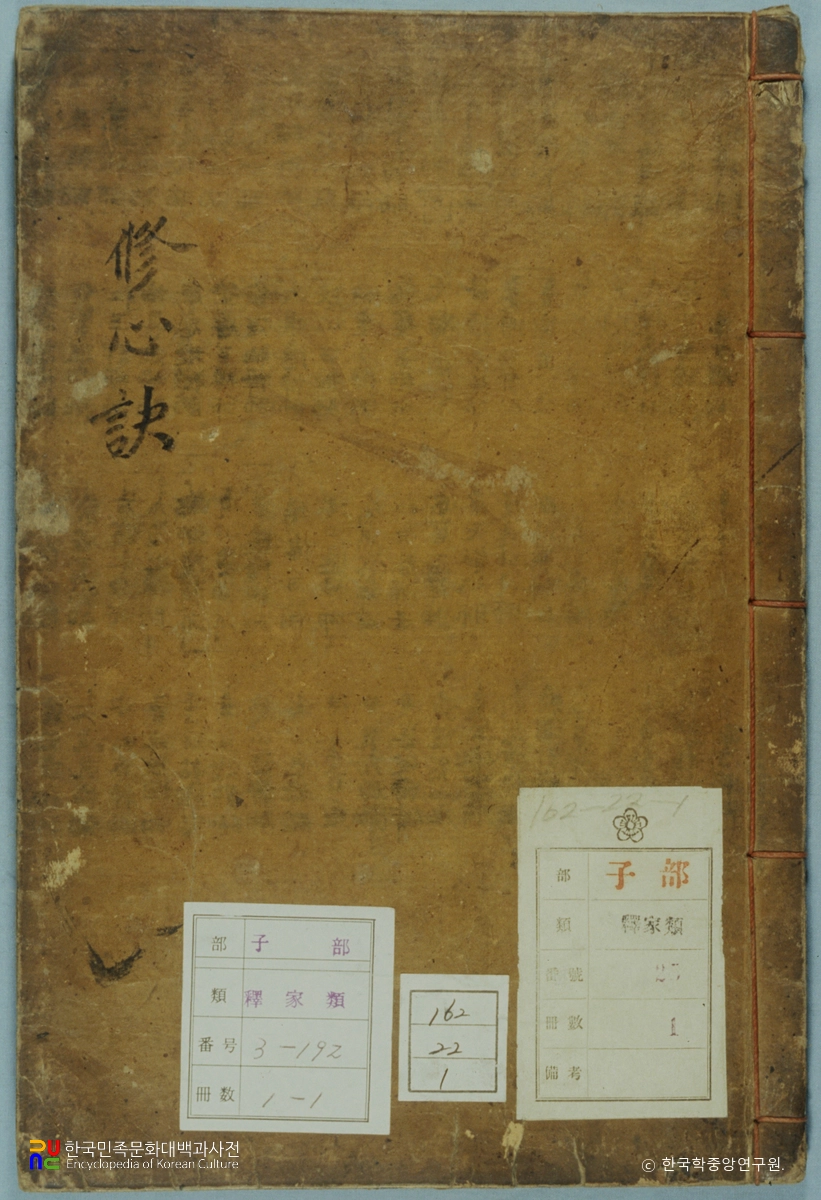 修心訣
162-22-1
部 子部
類 釋家類
番號 27
冊數 1
備考
部 子部
類 釋家類
番号 3-192
冊数 1-1
162
22
1
한국민족문화대백과사전
Encyclopedia of Korean Culture
© 한국학중앙연구원.